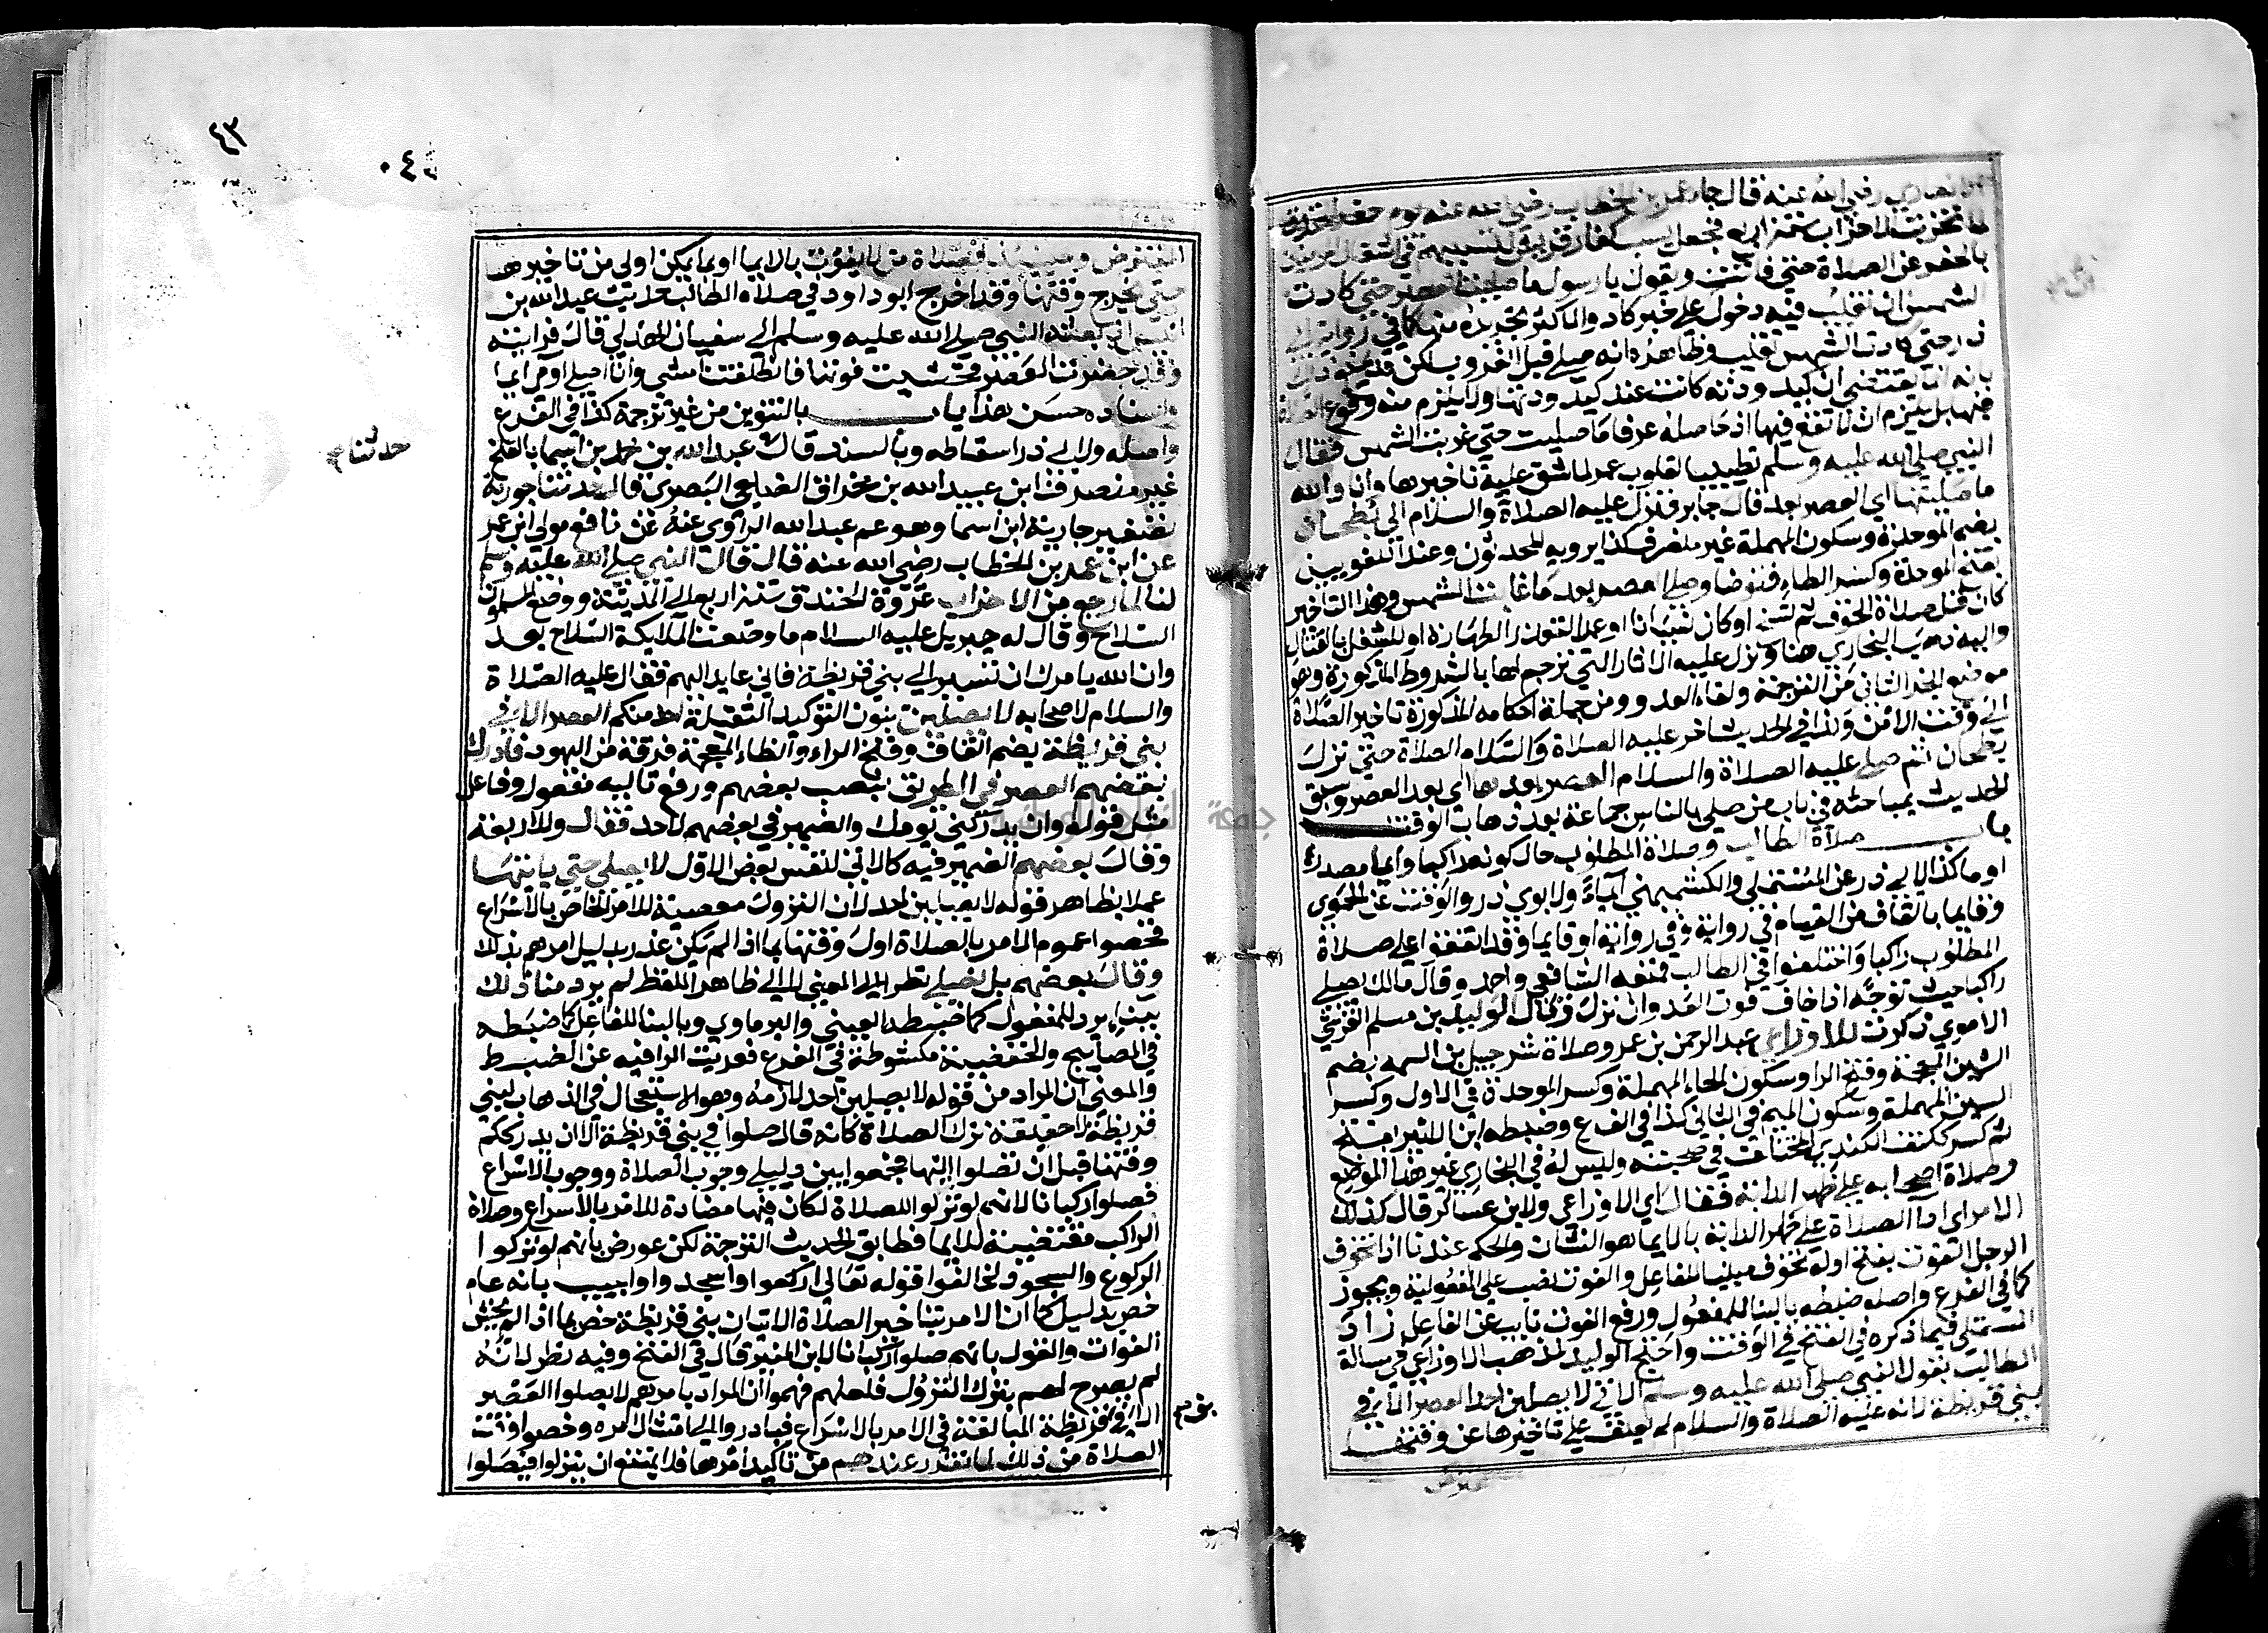 الانصاري رضي الله عنه قال جا عمر بن الخطاب رضي الله عنه يوم حفر الخندق
لما تحزبت الاحزاب سنة اربع فجعل يسب كفار قريش لتسببهم في اشتغال المومنين
بالحفر عن الصلاة حتي فاتت ويقول يا رسول ما صليت العصر حتي كادت
الشمس ان تغيب فيه دخول علي خبر كاد والاكثر تجريده منها كما في رواية ابي
ذر حتي كادت الشمس تغيب وظاهره انه صلي قبل الغروب لكن قد
بانه انما يقتضي ان كيدودته كانت عند كيدودتها ولا يلزم منه وقوع الصلاة
فيها بل يلزم ان لا تقع فيها اذ حاصله عرفا ما صليت حتي غربت الشمس فقال
النبي صلي الله عليه وسلم تطييبا لقلوب عمر لما شق عليه تاخيرها وانا والله
ما صليتها اي العصر بعد قال جابر فنزل عليه الصلاة والسلام الي بطحان
بضم الموحدة وسكون المهملة غير منصرف كذا يرويه المحدثون وعند اللغويين
بفتح الموحدة وكسر الطاء فتوضا وصلي العصر بعد ما غابت الشمس وهذا التاخير
كان قبل صلاة الخوف ثم نسخ او كان نسيانا او عمدا لتعذر الطهارة او للشغل بالقتال
واليه ذهب البخاري هنا ونزل عليه الاثار التي ترجم لها بالشروط المذكورة وهو
موضع الجزء الثاني من الترجمة ولقاء العدو ومن جملة احكامه المذكورة تاخير الصلاة
الي وقت الامن ولذا في الحديث اخر عليه الصلاة والسلام الصلاة حتي نزل
بطحان ثم صلي عليه الصلاة والسلام المغرب بعدها اي بعد العصر وسبق
الحديث بمباحثه في باب من صلي بالناس جماعة بعد ذهاب الوقت
باب صلاة الطالب وصلاة المطلوب حال كونه راكبا وايما مصدر
اوما كذا لابي ذر عن المستملي والكشميهني ايماء ولابوي ذر والوقت عن الحموي
وقايما بالقاف من القيام في رواية وفي رواية او قايما وقد اتفقوا علي صلاة
المطلوب راكبا واختلفوا في الطالب فمنعه الشافعي واحمد وقال مالك يصلي
راكبا حيث توجه اذا خاف فوت العدو ان نزل وقال الوليد بن مسلم القرشي
الاموي ذكرت للاوزاعي عبد الرحمن بن عمر وصلاة شرحبيل بن السمط بضم
الشين المعجمة وفتح الرا وسكون الحاء المهملة وكسر الموحدة في الاول وكسر
السين المهملة وسكون الميم في الثاني كذا في الفرع وضبطه ابن الاثير بفتح
ثم كسر ككتف الكندي المختلف في صحبته وليس له في البخاري غير هذا الموضع
وصلاة اصحابه علي ظهر الدابة فقال اي الاوزاعي ولابن عساكر قال كذلك
الامر اي ادا الصلاة علي ظهر الدابة بالايما هو الشان والحكم عندنا اذا تخوف
الرجل الفوت بفتح اوله تخوف مبنيا للفاعل والفوت نصب علي المفعولية ويجوز
كما في الفرع واصله ضبطه بالبنا للمفعول ورفع الفوت نايب عن الفاعل زاد
المستملي فيما ذكره في الفتح في الوقت واحتج الوليد لمذهب الاوزاعي في مسالة
الطالب بقول النبي صلي الله عليه وسلم الاتي لا يصلين احد العصر الا في
بني قريظة لانه عليه الصلاة والسلام لم يعنف علي تاخيرها عن وقتها
٤٣
٠٤٤
المفترض وحينئذ فصلاة من لا يفوت بالايما او بما يمكن اولي من تاخيرها
حتي يخرج وقتها وقد اخرج ابو داود في صلاة الطالب حديث عبد الله بن
انيس اذ بعثه النبي صلي الله عليه وسلم الي سفيان الهذلي قال فرايته
وقد حضرت العصر فخشيت فوتها فانطلقت امشي وانا اصلي اومي ايما
واسناده حسن هذا باب بالتنوين من غير ترجمة كذا في الفرع
واصله ولابي ذر اسقاطه وبالسند قال عبد الله بن محمد بن اسما بالفتح
حدثنا
غير منصرف ابن عبيد الله بن مخراق الضبعي البصري قال حدثنا جويرية
تصغير جارية ابن اسما وهو عم عبد الله الراوي عنه عن نافع مولي ابن عمر
عن ابن عمر بن الخطاب رضي الله عنه قال قال النبي صلي الله عليه وسلم
لنا لما رجع من الاحزاب غزوة الخندق سنة اربع الي المدينة ووضع المسلمون
السلاح وقال له جبريل عليه السلام ما وضعت الملايكة السلاح بعد
وان الله يامرك ان تسير الي بني قريظة فاني عايد اليهم فقال عليه الصلاة
والسلام لاصحابه لا يصلين بنون التوكيد الثقيلة احد منكم العصر الا في
بني قريظة بضم القاف وفتح الراء والظاء المعجمة فرقة من اليهود فادرك
بعضهم العصر في الطريق بنصب بعضهم ورفع تاليه مفعول وفاعل
مثل قوله وان يدركني يومك والضمير في بعضهم لاحد فقال وللاربعة
وقال بعضهم الضمير فيه كالاتي لنفس بعض الاول لا نصلي حتي ناتيها
عملا بظاهر قوله لا يصلين احد لان النزول معصية للامر الخاص بالاسراع
فخصوا عموم الامر بالصلاة اول وقتها بما اذا لم يكن عذر بدليل امرهم بذلك
وقال بعضهم بل نصلي نظرا الي المعني لا الي ظاهر اللفظ لم يرد منا ذلك
ببناء يرد للمفعول كما ضبطه العيني والبرماوي وبالبنا للفاعل كما ضبطه
في المصابيح والخفضة مكشوطة في الفرع فعريت الرا فيه عن الضبط
والمعني ان المراد من قوله لا يصلين احد لازمه وهو الاستعجال في الذهاب لبني
قريظة لا حقيقة ترك الصلاة كانه قال صلوا في بني قريظة الا ان يدرككم
وقتها قبل ان تصلوا اليها فجمعوا بين دليلي وجوب الصلاة ووجوب الاسراع
فصلوا ركبانا لانهم لو نزلوا للصلاة لكان فيها مضادة للامر بالاسراع وصلاة
الراكب مقتضية للايما فطابق الحديث الترجمة لكن عورض بانهم لو تركوا
الركوع والسجود لخالفوا قوله تعالي اركعوا واسجدوا واجيب بانه عام
خص بدليل كما ان الامر بتاخير الصلاة الي اتيان بني قريظة خص بما اذا لم يخش
الفوات والقول بانهم صلوا ركبانا لابن المنير قال في الفتح وفيه نظر لانه
لم يصرح لهم بترك النزول فلعلهم فهموا ان المراد بامرهم لا يصلوا العصر
الا في قريظة المبالغة في الامر بالاسراع فبادروا الي امتثال امره وخصوا وقت
بني
الصلاة من ذلك لما تقرر عندهم من تاكيد امرها فلا يمتنع ان ينزلوا فيصلوا